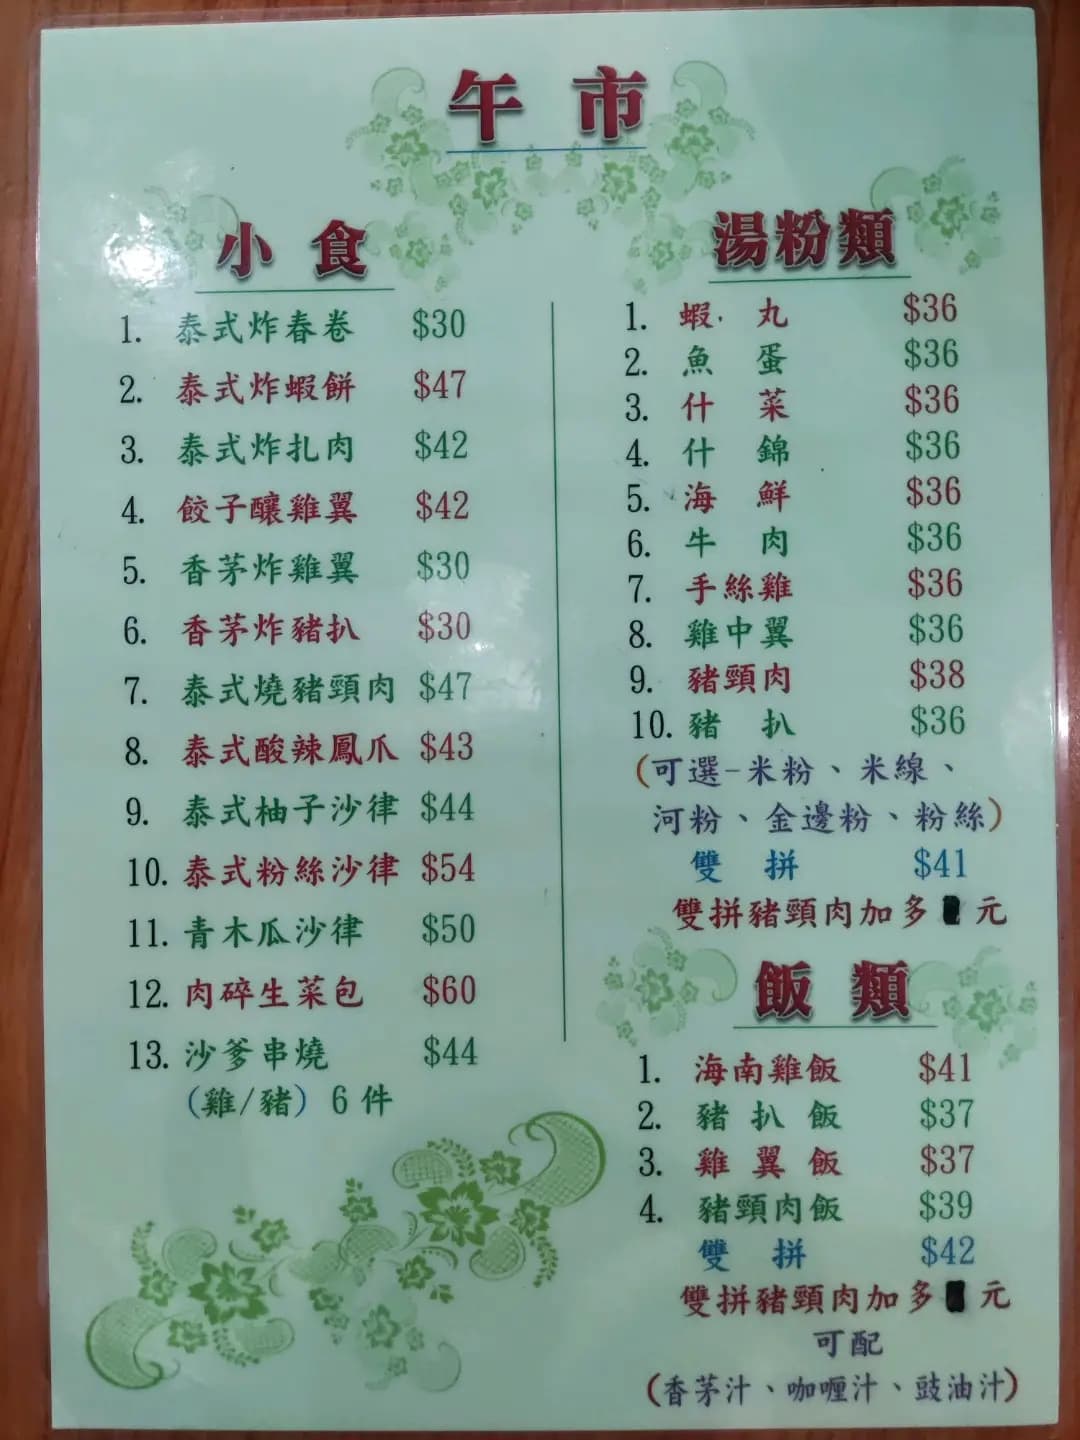 午市
小食
1. 泰式炸春卷 $30
2. 泰式炸蝦餅 $47
3. 泰式炸扎肉 $42
4. 餃子釀雞翼 $42
5. 香茅炸雞翼 $30
6. 香茅炸豬扒 $30
7. 泰式燒豬頸肉 $47
8. 泰式酸辣鳳爪 $43
9. 泰式柚子沙律 $44
10. 泰式粉絲沙律 $54
11. 青木瓜沙律 $50
12. 肉碎生菜包 $60
13. 沙爹串燒 $44
(雞/豬) 6 件
湯粉類
1. 蝦丸 $36
2. 魚蛋 $36
3. 什菜 $36
4. 什錦 $36
5. 海鮮 $36
6. 牛肉 $36
7. 手絲雞 $36
8. 雞中翼 $36
9. 豬頸肉 $38
10. 豬扒 $36
(可選-米粉、米線、
河粉、金邊粉、粉絲)
雙拼 $41
雙拼豬頸肉加多 元
飯類
1. 海南雞飯 $41
2. 豬扒飯 $37
3. 雞翼飯 $37
4. 豬頸肉飯 $39
雙拼 $42
雙拼豬頸肉加多 元
可配
(香茅汁、咖喱汁、豉油汁)